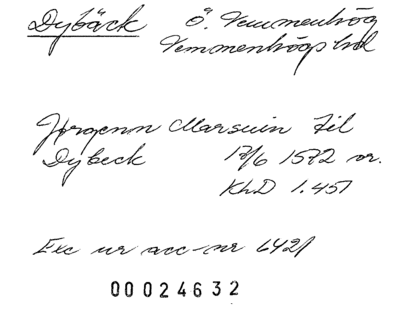 Dybäck Ö. Vemmenhög
Vemmenhögs hd
Jørgenn Marsuin til
Dybeck 17/6 1572 nr.
KhD 1.451
Exc ur acc-nr 6421
00024632